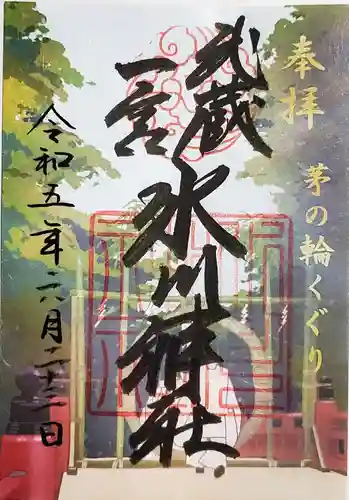 奉拝
茅の輪くぐり
武蔵
一宮
氷川神社
令和五年六月二十二日